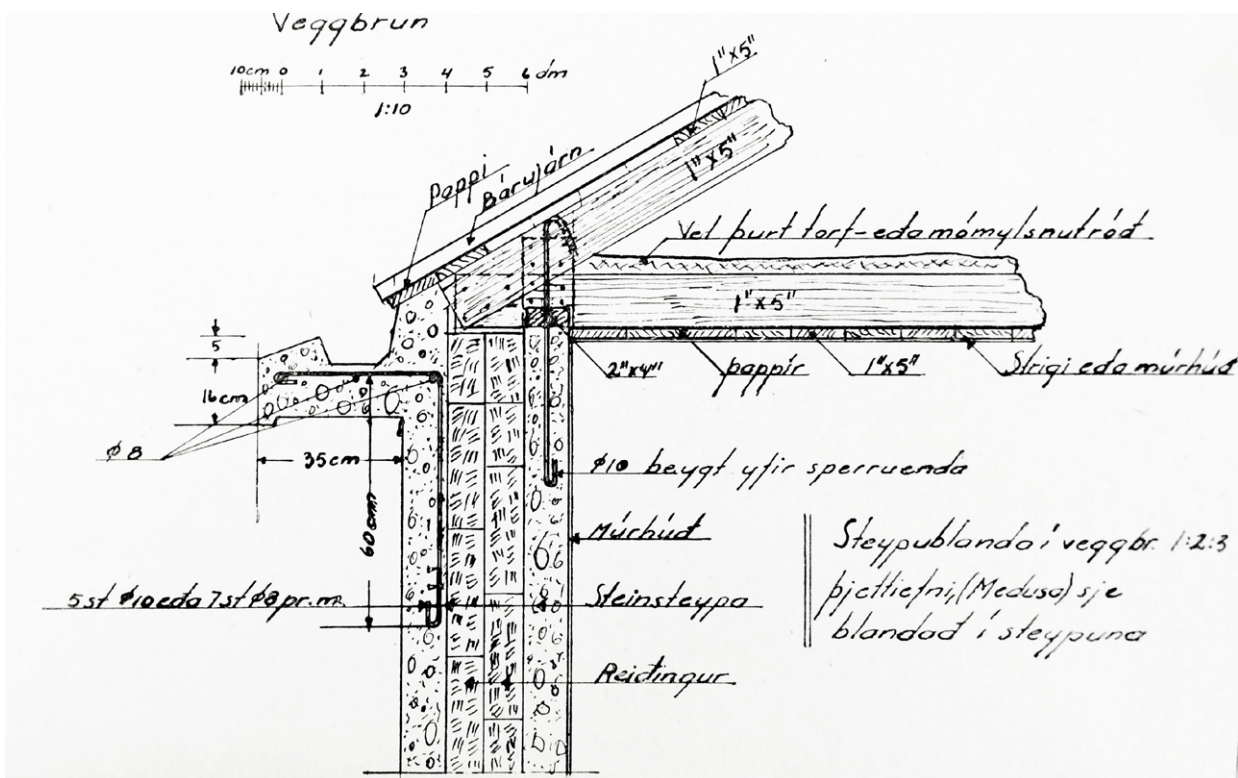 Veggbrun
10cm 0 1 2 3 4 5 6 dm
1:10
1"x5"
Pappi
Bárujárn
1"x5"
Vel þurt torf- eða mómylsnutróð
1"x5"
5
16cm
2"x4"
pappír
1"x5"
Strigi eða múrhúð
ø8
35cm
60cm
ø10 beygt yfir sperruenda
Múrhúð
5 st ø10 eða 7 st ø8 pr. m.
Steinsteypa
Reiðingur
Steypublanda í veggbr. 1:2:3
þjettiefni, (Medusa) sje
blandað í steypuna